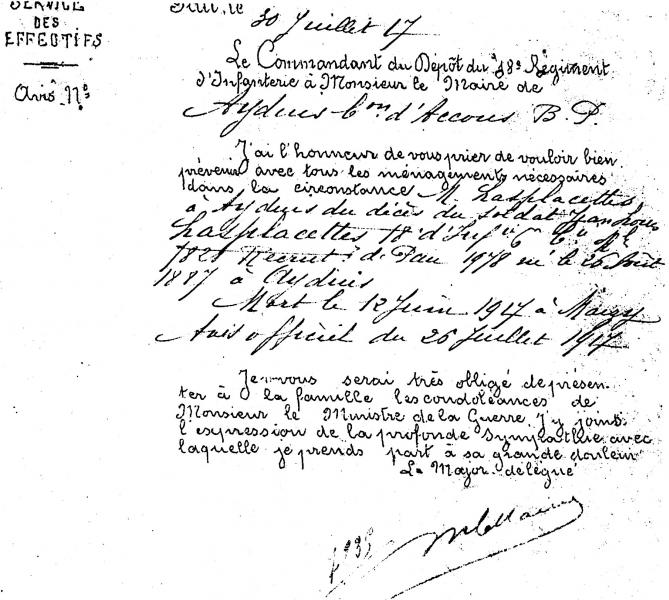 SERVICE
DES
EFFECTIFS
Avis N°
30 Juillet 17
Le Commandant du Dépôt du 18e Régiment
d'Infanterie à Monsieur le Maire de
Aydius Con d'Accous B. P.
J'ai l'honneur de vous prier de vouloir bien
prévenir avec tous les ménagements nécessaires
dans la circonstance M. Lasplacettes
à Aydius du décès du soldat
Lasplacettes 18e d'Infie 6e Cie Mle
7821 Recrutt de Pau 1978 né le 26 Août
1887 à Aydius
Mort le 12 Juin 1917 à
Avis officiel du 26 Juillet 1917
Je vous serai très obligé de présen-
ter à la famille les condoléances de
Monsieur le Ministre de la Guerre. J'y joins
l'expression de la profonde sympathie avec
laquelle je prends part à sa grande douleur
Le Major délégué